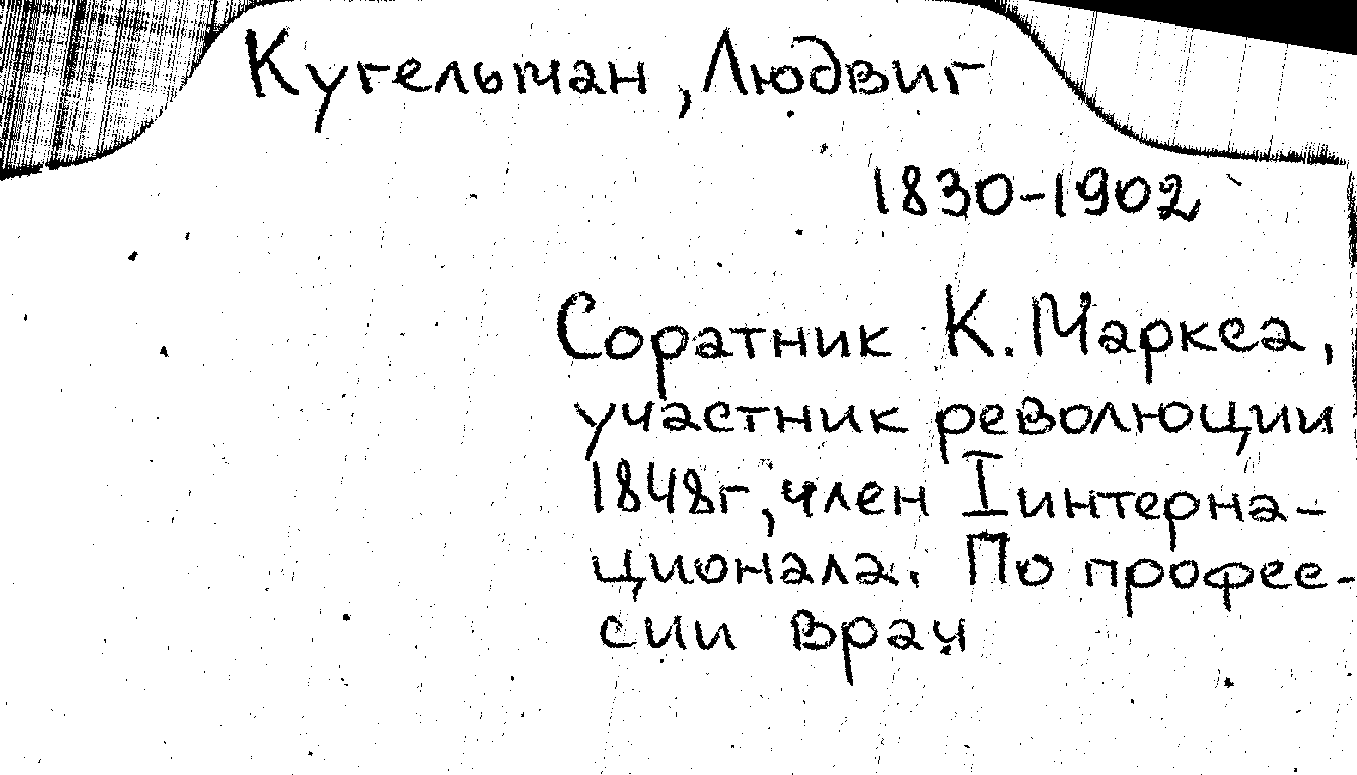 Кугельман, Людвиг
1830-1902
Соратник К. Маркса,
участник революции
1848г, член I интерна-
ционала. По профес-
сии врач